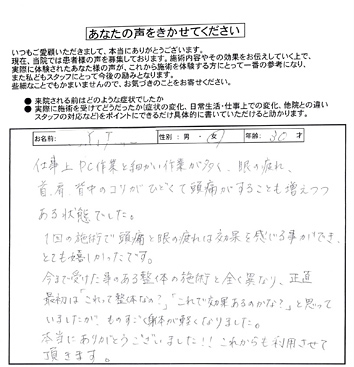 あなたの声をきかせてください
いつもご愛顧いただきまして、本当にありがとうございます。
現在、当院では患者様の声を募集しております。施術内容やその効果をお伝えしていく上で、
実際に体験されたあなた様の声が、これから施術を体験する方にとって一番の参考になり、
また私どもスタッフにとって今後の励みとなります。
些細なことでもかまいませんので、お気づきのことをお寄せください。
● 来院される前はどのような症状でしたか
● 実際に施術を受けてどうだったか(症状の変化、日常生活・仕事上での変化、他院との違い
スタッフの対応など)をポイントにできるだけ具体的に書いていただけると助かります。
お名前: Y.T 性別: 男・女 年齢: 30才
仕事上PC作業と細かい作業が多く、眼の疲れ、
首、肩、背中のコリがひどくて頭痛がすることも増えつつ
ある状態でした。
1回の施術で頭痛と眼の疲れは効果を感じる事ができ、
とても嬉しかったです。
今まで受けた事のある整体の施術と全く異なり、正直
最初は「これって整体なの?」「これで効果あるのかな?」と思って
いましたが、ものすごく身体が軽くなりました。
本当にありがとうございました!!これからも利用させて
頂きます。